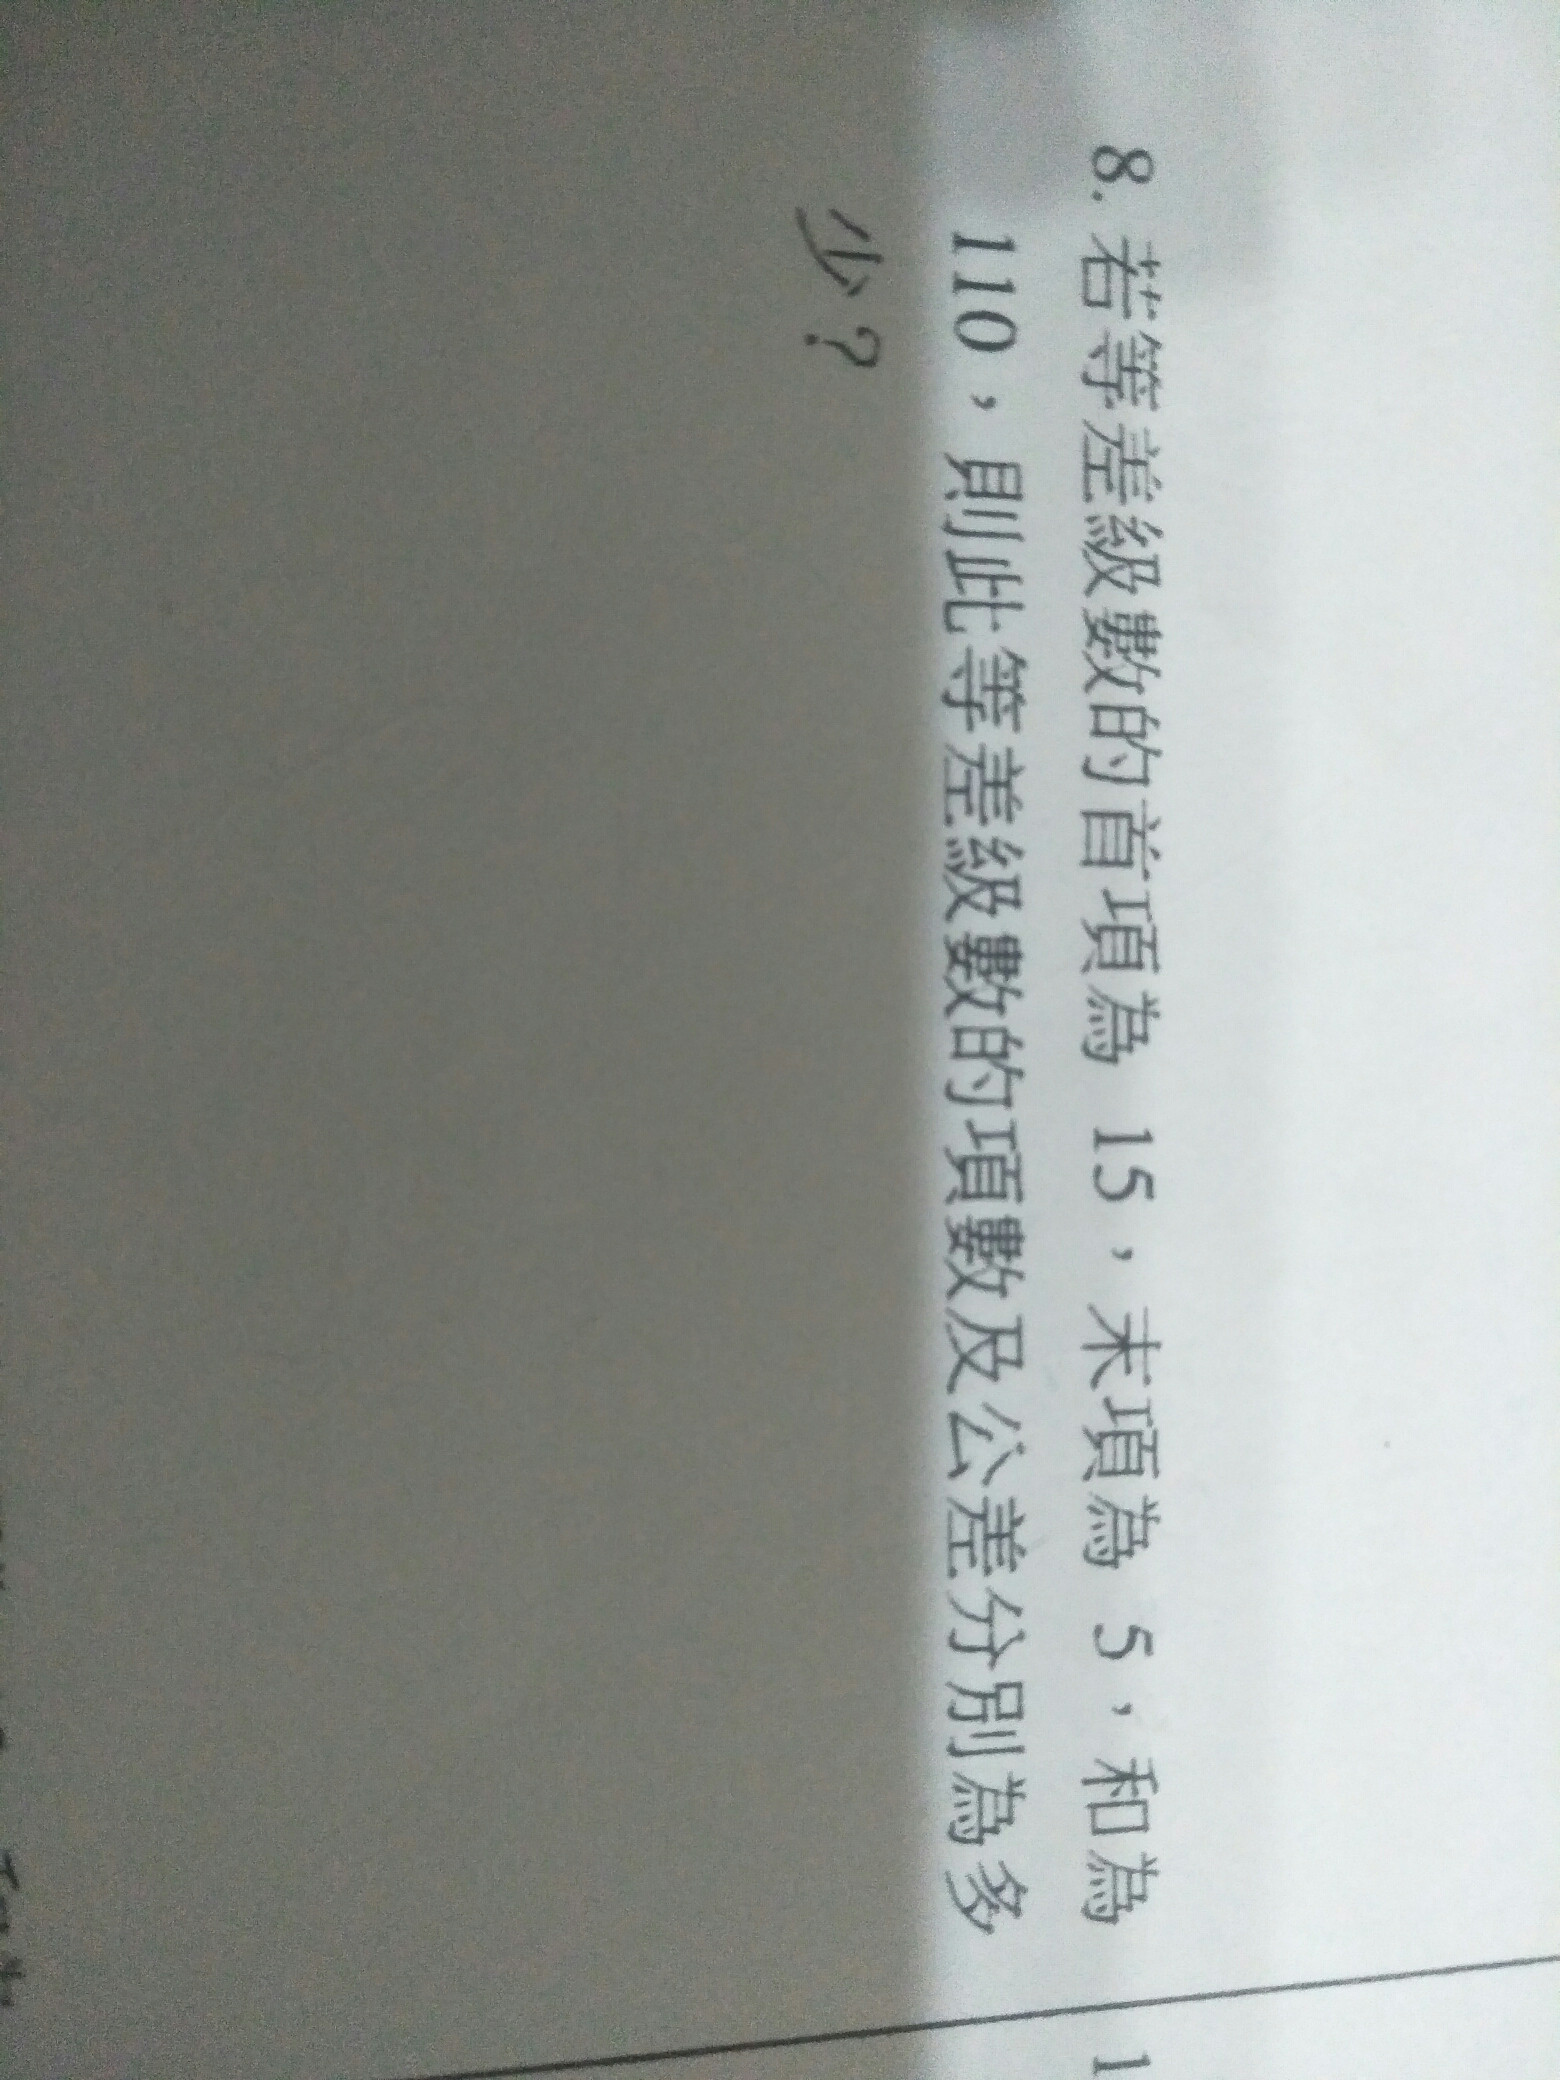 8. 若等差級數的首項為 15，末項為 5，和為
110，則此等差級數的項數及公差分別為多
少？
1